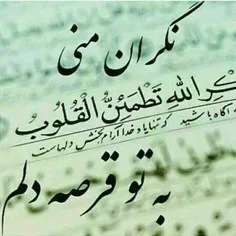 نگران منی
كْرِ اللَّهِ تَطْمَئِنُّ الْقُلُوبُ
آگاه باشید که تنها یاد خدا آرام بخش دلهاست
به تو قرصه دلم